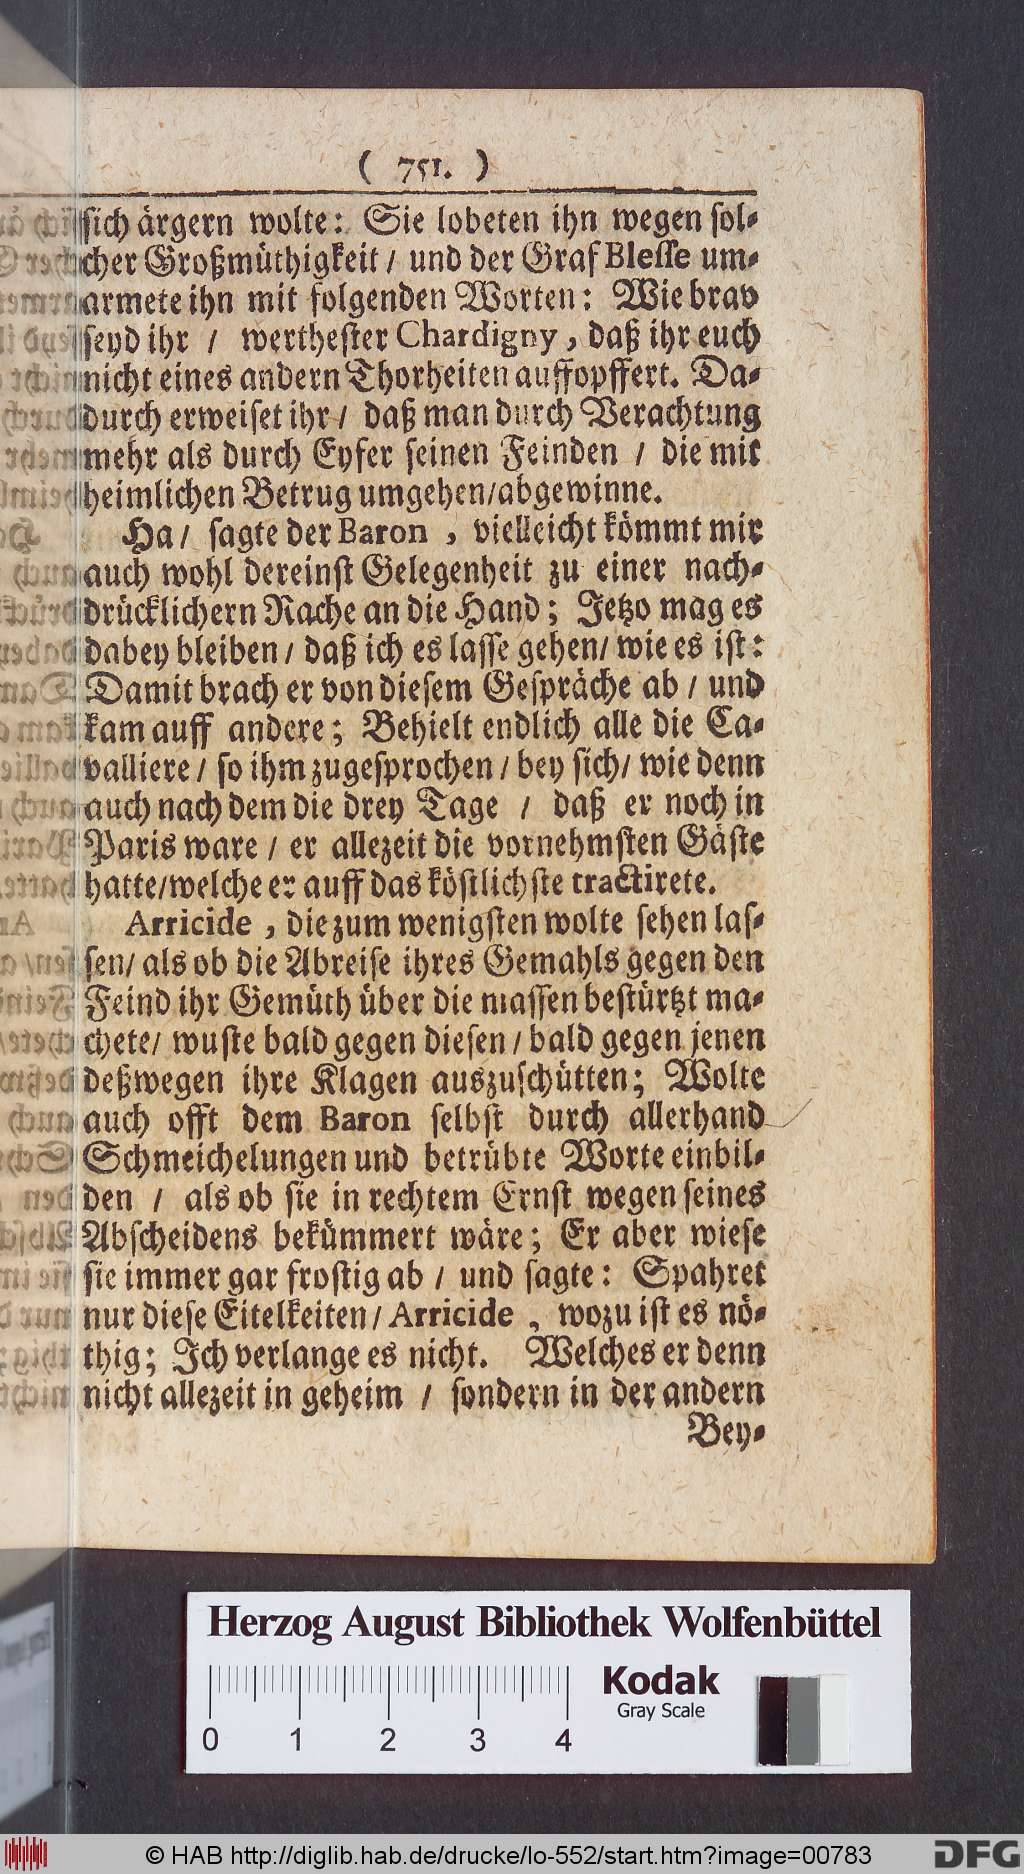 ( 751. )
sich ärgern wolte: Sie lobeten ihn wegen sol-
cher Großmüthigkeit / und der Graf Blesse um-
armete ihn mit folgenden Worten: Wie brav
seyd ihr / werthester Chardigny, daß ihr euch
nicht eines andern Thorheiten auffopffert. Da-
durch erweiset ihr / daß man durch Verachtung
mehr als durch Eyfer seinen Feinden / die mit
heimlichen Betrug umgehen/abgewinne.
Ha / sagte der Baron, vielleicht kömmt mir
auch wohl dereinst Gelegenheit zu einer nach-
drücklichern Rache an die Hand; Jetzo mag es
dabey bleiben / daß ich es lasse gehen/ wie es ist:
Damit brach er von diesem Gespräche ab / und
kam auff andere; Behielt endlich alle die Ca-
valliere / so ihm zugesprochen / bey sich/ wie denn
auch nach dem die drey Tage / daß er noch in
Paris ware / er allezeit die vornehmsten Gäste
hatte/welche er auff das köstlichste tractirete.
Arricide, die zum wenigsten wolte sehen las-
sen/ als ob die Abreise ihres Gemahls gegen den
Feind ihr Gemüth über die massen bestürtzt ma-
chete/ wuste bald gegen diesen / bald gegen jenen
deßwegen ihre Klagen auszuschütten; Wolte
auch offt dem Baron selbst durch allerhand
Schmeichelungen und betrübte Worte einbil-
den / als ob sie in rechtem Ernst wegen seines
Abscheidens bekümmert wäre; Er aber wiese
sie immer gar frostig ab / und sagte: Spahret
nur diese Eitelkeiten / Arricide, wozu ist es nö-
thig; Ich verlange es nicht. Welches er denn
nicht allezeit in geheim / sondern in der andern
Bey-
Herzog August Bibliothek Wolfenbüttel
Kodak
Gray Scale
0 1 2 3 4
© HAB http://diglib.hab.de/drucke/lo-552/start.htm?image=00783
DFG